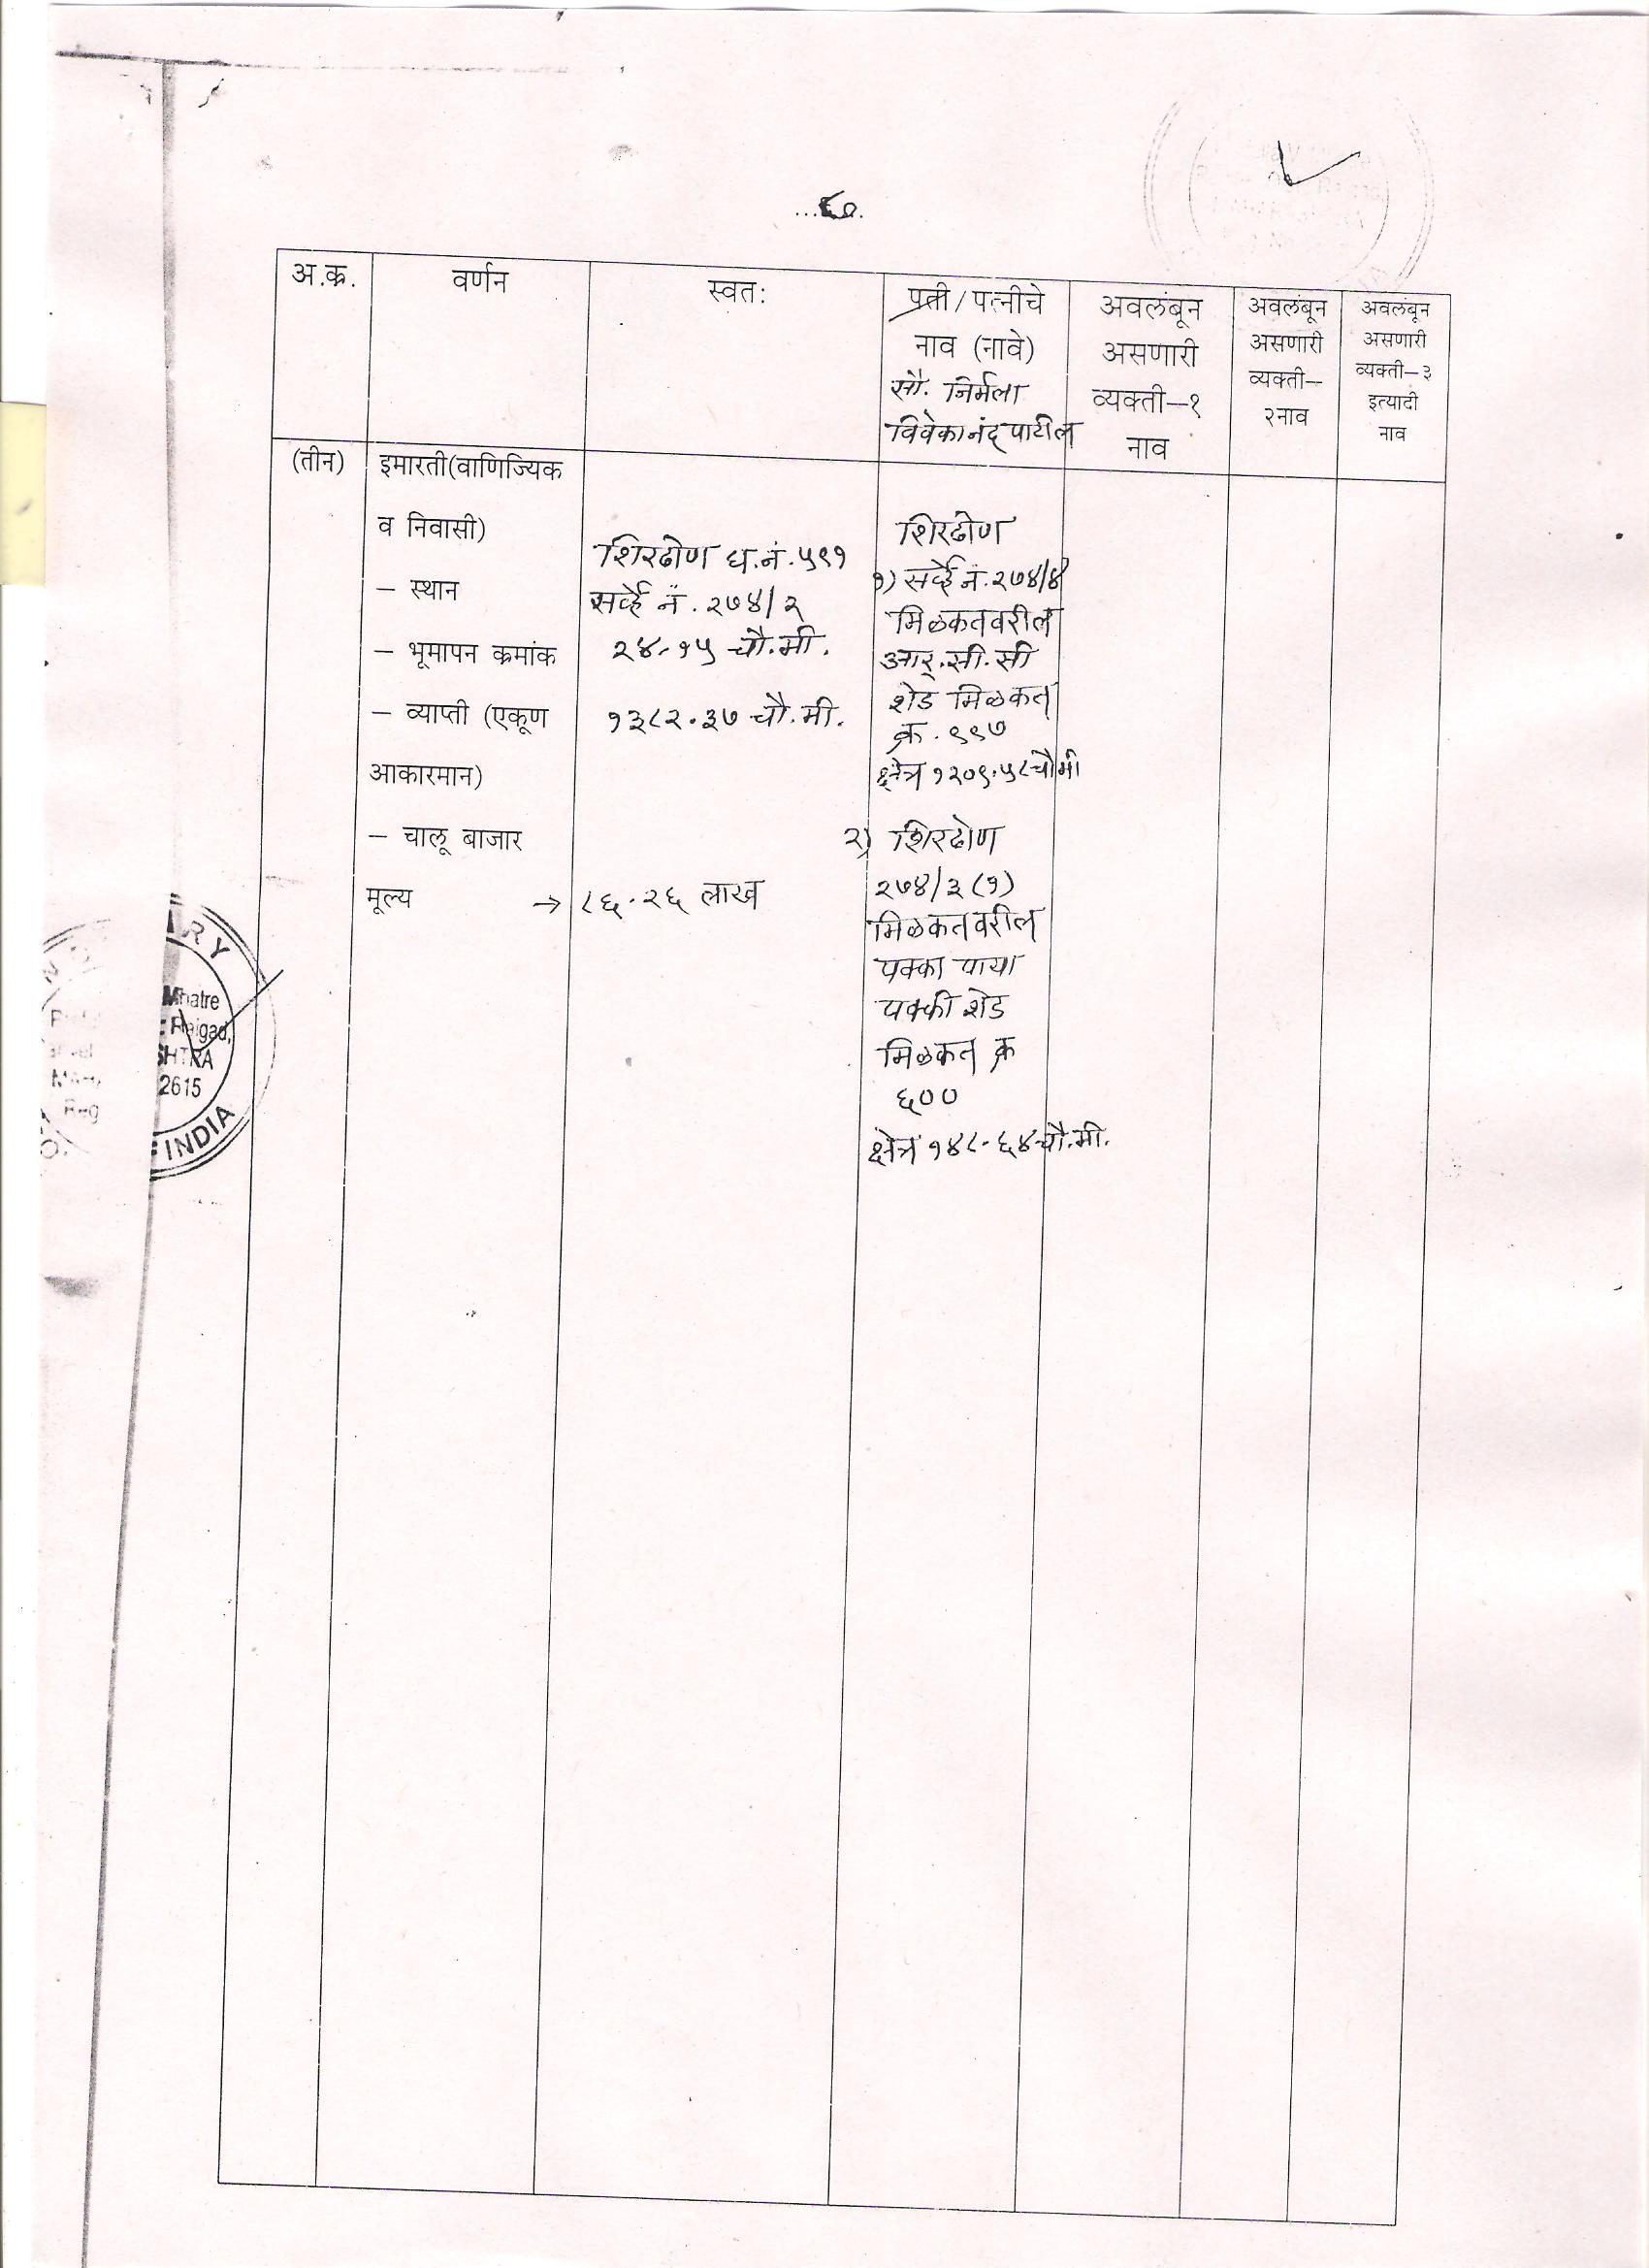 अ.क्र.
वर्णन
स्वत:
पती/पत्नीचे
नाव (नावे)
सौ. निर्मला
विवेकानंद पाटील
अवलंबून
असणारी
व्यक्ती–१
नाव
अवलंबून
असणारी
व्यक्ती–
२नाव
अवलंबून
असणारी
व्यक्ती–३
इत्यादी
नाव
(तीन)
इमारती(वाणिज्यिक
व निवासी)
– स्थान
– भूमापन क्रमांक
– व्याप्ती (एकूण
आकारमान)
– चालू बाजार
मूल्य →
शिरढोण घ.नं.५९१
सर्व्हे नं. २७४/२
२४.१५ चौ.मी.
१३८२.३७ चौ.मी.
८६.२६ लाख
शिरढोण
१) सर्व्हे नं.२७४/४
मिळकतवरील
आर.सी.सी
शेड मिळकत
क्र. ९९७
क्षेत्र १२०९.५८चौमी
२) शिरढोण
२७४/३(१)
मिळकतवरील
पक्का पाया
पक्की शेड
मिळकत क्र
६००
क्षेत्र १४८.६४चौ.मी.
RY
Mhatre
Raigad,
SHTRA
2615
INDIA